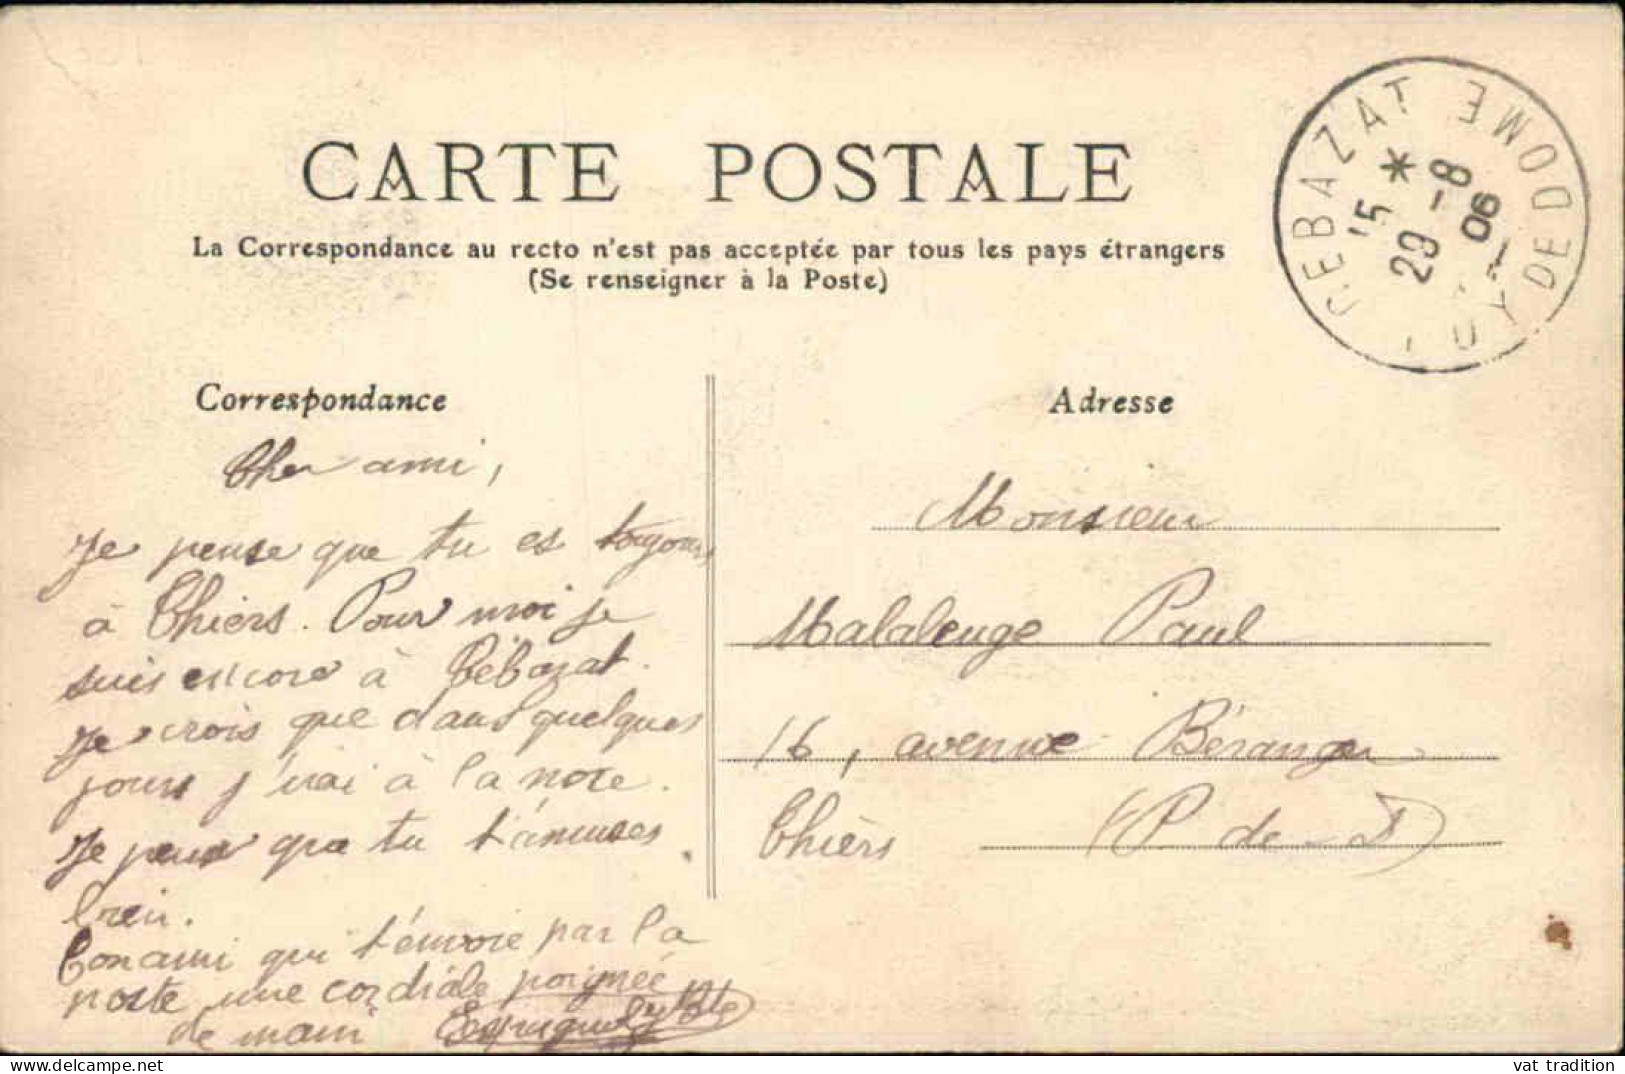 CARTE POSTALE
La Correspondance au recto n'est pas acceptée par tous les pays étrangers
(Se renseigner à la Poste)
CEBAZAT PUY DE DOME
15 *
29 -8
06
Correspondance
Cher ami,
Je pense que tu es toujours
à Thiers. Pour moi je
suis encore à Cébazat.
Je crois que dans quelques
jours j'irai à la noce.
Je pense que tu t'amuses
bien.
Ton ami qui t'envoie par la
poste une cordiale poignée
de main
Adresse
Monsieur
Malalenge Paul
16, avenue Béranger
Thièrs (P de-D)
vat tradition